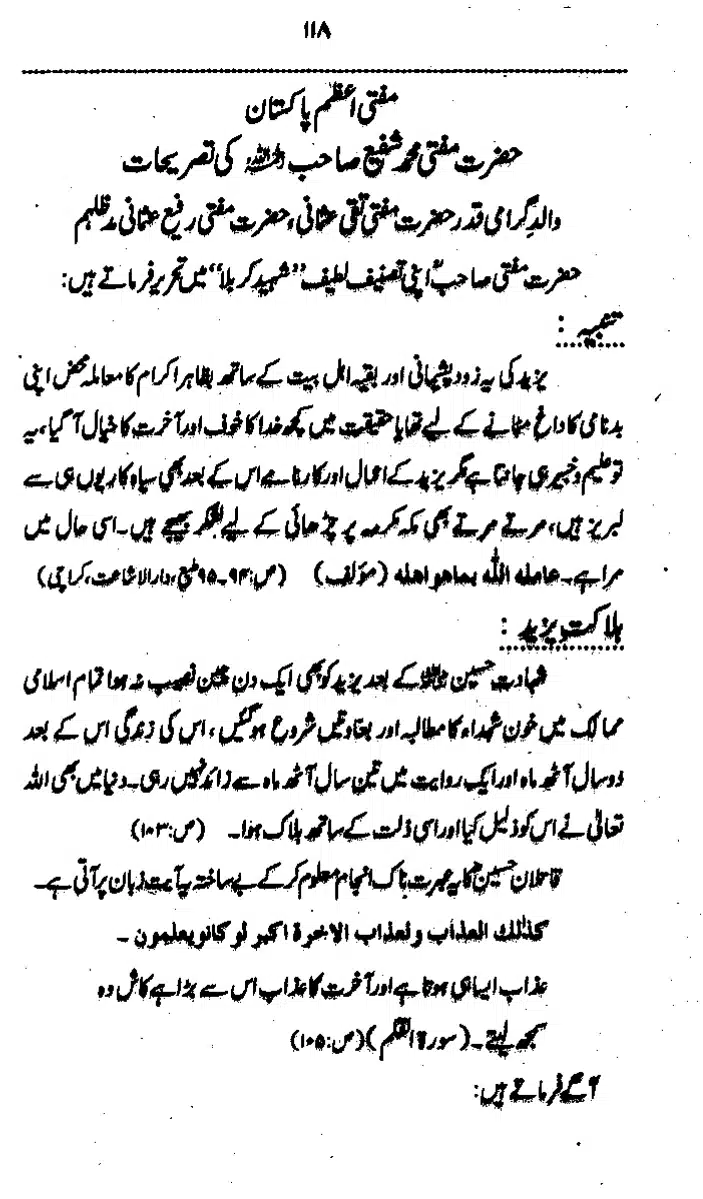 ۱۱۸
مفتی اعظم پاکستان
حضرت مفتی محمد شفیع صاحب رحمہ اللہ کی تصریحات
والدِ گرامی قدر حضرت مفتی تقی عثمانی، حضرت مفتی رفیع عثمانی مدظلہم
حضرت مفتی صاحبؒ اپنی تصنیف لطیف ”شہیدِ کربلا“ میں تحریر فرماتے ہیں:
تنبیہ :
یزید کی یہ زود پشیمانی اور بقیہ اہل بیت کے ساتھ بظاہر اکرام کا معاملہ محض اپنی
بدنامی کا داغ مٹانے کے لیے تھا یا حقیقت میں کچھ خدا کا خوف اور آخرت کا خیال آ گیا، یہ
تو علیم و خبیر ہی جانتا ہے مگر یزید کے اعمال اور کارنامے اس کے بعد بھی سیاہ کاریوں ہی سے
لبریز ہیں، مرتے مرتے بھی مکہ مکرمہ پر چڑھائی کے لیے لشکر بھیجے ہیں۔ اسی حال میں
مرا ہے۔ عاملہ اللہ بماھو اھلہ (مؤلف) (ص:۹۴۔۹۵ طبع، دارالاشاعت، کراچی)
ہلاکت یزید :
شہادت حسین کے بعد یزید کو بھی ایک دن چین نصیب نہ ہوا تمام اسلامی
ممالک میں خونِ شہداء کا مطالبہ اور بغاوتیں شروع ہو گئیں، اس کی زندگی اس کے بعد
دو سال آٹھ ماہ اور ایک روایت میں تین سال آٹھ ماہ سے زائد نہیں رہی۔ دنیا میں بھی اللہ
تعالیٰ نے اس کو ذلیل کیا اور اسی ذلت کے ساتھ ہلاک ہوا۔ (ص:۱۰۳)
قاتلان حسین کا یہ عبرت ناک انجام معلوم کر کے بے ساختہ یہ آیت زبان پر آتی ہے۔
کذلك العذاب ولعذاب الاخرة اکبر لو کانو یعلمون ۔
عذاب ایسا ہی ہوتا ہے اور آخرت کا عذاب اس سے بڑا ہے کاش وہ
سمجھ لیتے۔ (سورۃ القلم) (ص:۱۰۵)
آگے فرماتے ہیں: